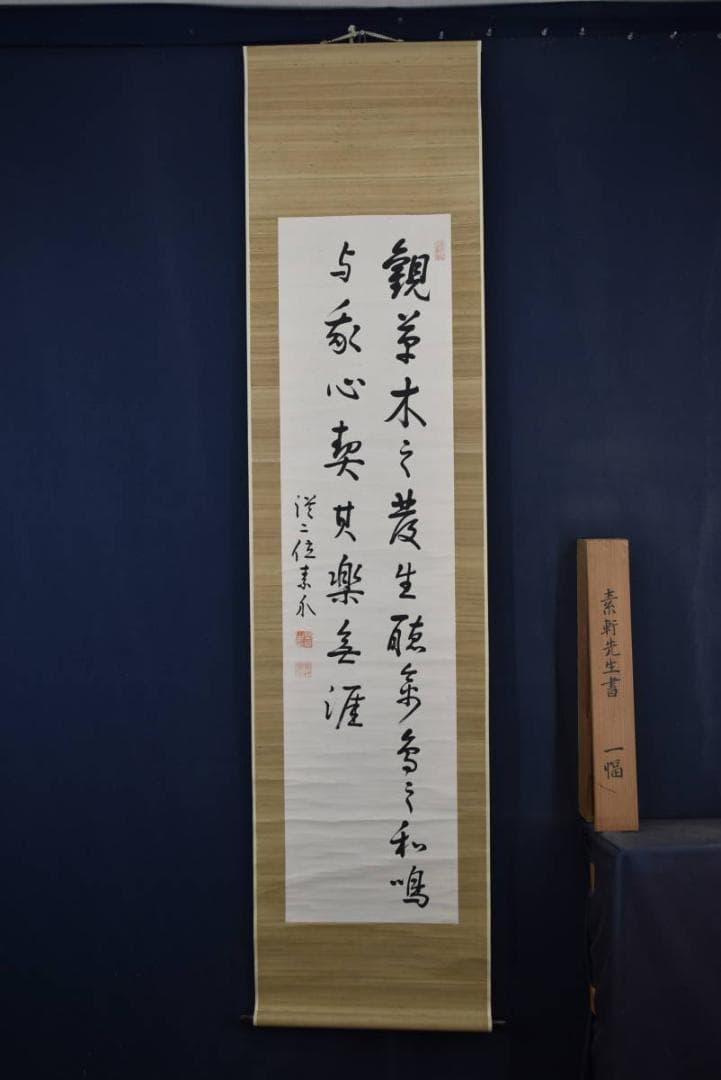 觀草木之發生聽禽鳥之和鳴
与我心契其樂無涯
従二位素介
素軒先生書 一幅